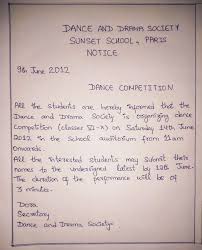 DANCE AND DRAMA SOCIETY
SUNSET SCHOOL, PARIS
NOTICE
9th June 2012
DANCE COMPETITION
All the students are hereby informed that the
Dance and Drama Society is organizing dance
Competition (classes VI-X) on Saturday 14th June,
2012 in the school auditorium from 11am
onwards.
All the interested students may submit their
names to the undersigned latest by 12th June.
The duration of the performance will be of
3 minutes.
Dora
Secretary
Dance and Drama Society